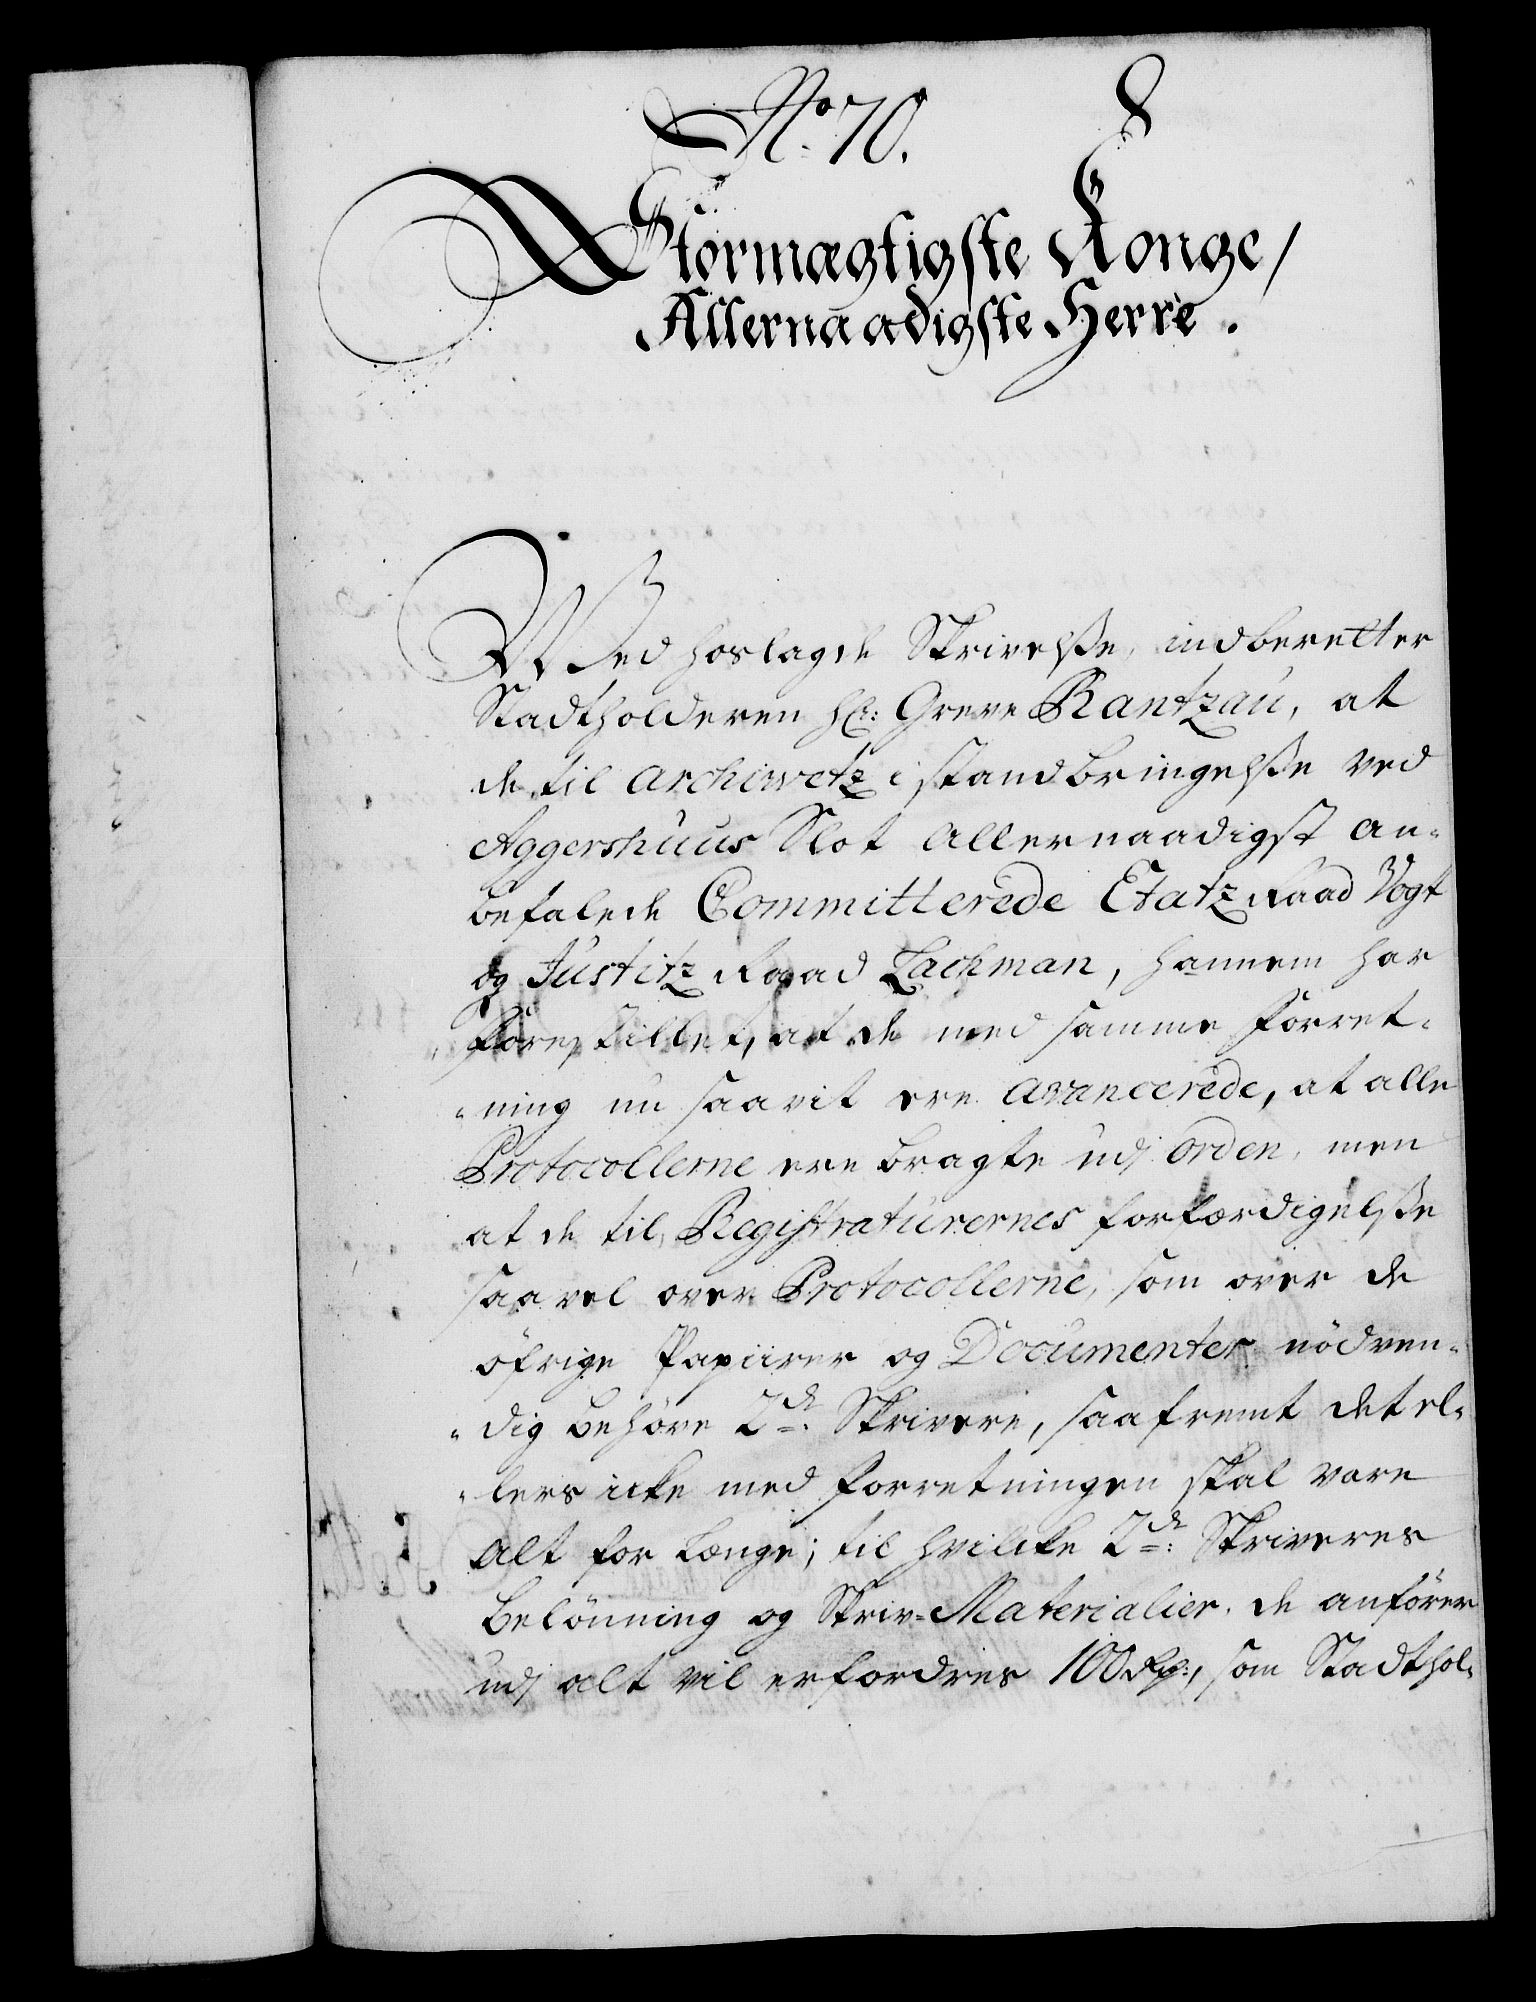 No. 70.
Stormægtigste Konge,
Allernaadigste Herre.
Med hoslagde Skrivelsse, indberetter
Stadtholderen Hr: Greve Rantzau, at
de til Archivetz istandbringelsse ved
Aggershuus Slot allernaadigst an-
befalede Committerede Etatz Raad Vogt
og Justitz Raad Lachman, hannem har
forestillet, at de med samme Forret-
-ning nu saavit ere avancerede, at alle
Protocollerne ere bragte udj orden, men
at de til Registraturernes forfærdigelsse
saavel over Protocollerne, som over de
öfrige Papiirer og Documenter nödven-
-dig behöve 2de: Skrivere, saafremt det el-
-lers icke med forretningen skal vare
alt for længe; til hvilcke 2de: Skriveres
belönning og Skriv-Materialier, de anförer
udj alt vil erfordres 100 Rdr:, som Stadthol-